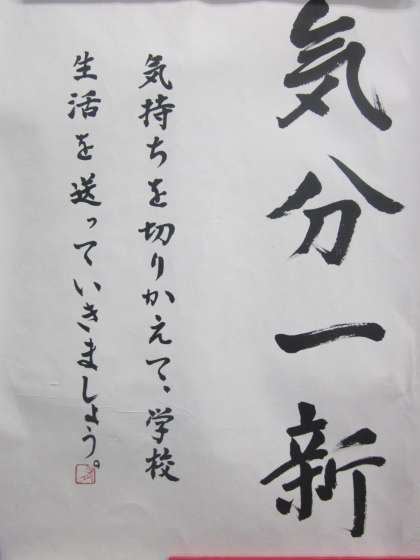 気分一新
気持ちを切りかえて、学校
生活を送っていきましょう。